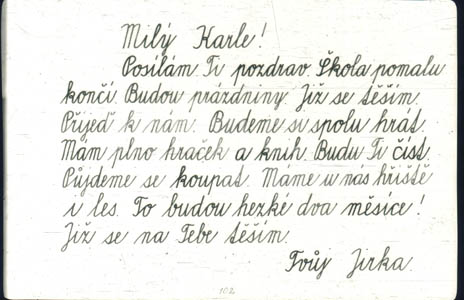 Milý Karle!
Posílám Ti pozdrav. Škola pomalu
končí. Budou prázdniny. Již se těším.
Přijeď k nám. Budeme si spolu hrát.
Mám plno hraček a knih. Budu Ti číst.
Půjdeme se koupat. Máme u nás hřiště
i les. To budou hezké dva měsíce!
Již se na Tebe těším.
Tvůj Jirka.
102